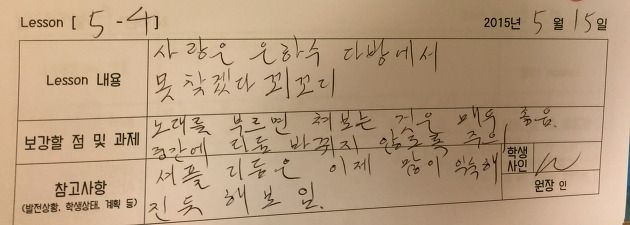 Lesson [ 5-4 ] 2015년 5월 15일
Lesson 내용
사랑은 은하수 다방에서
못찾겠다 꾀꼬리
보강할 점 및 과제
노래를 부르면 쳐보는 것은 매우 좋음.
중간에 리듬 바뀌지 않도록 주의
참고사항
(발전상황, 학생상태, 계획 등)
셔플 리듬은 이제 많이 익숙해
진듯 해보임.
학생
사인
원장 인